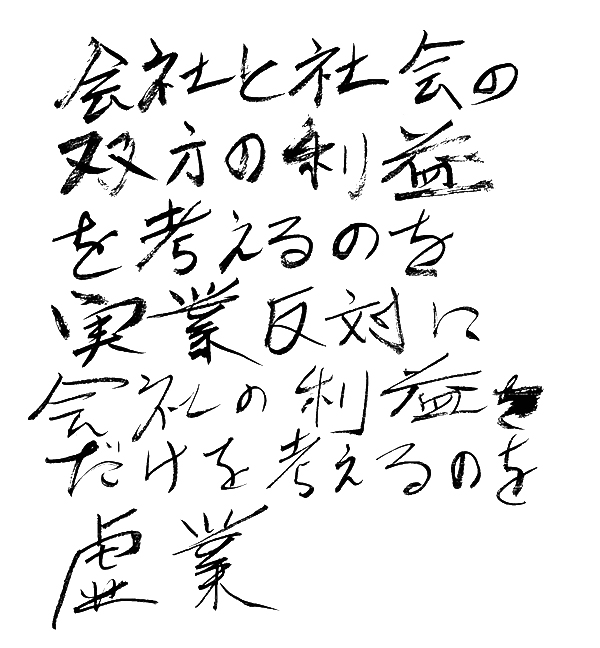 会社と社会の
双方の利益
を考えるのを
実業反対に
会社の利益
だけを考えるのを
虚業